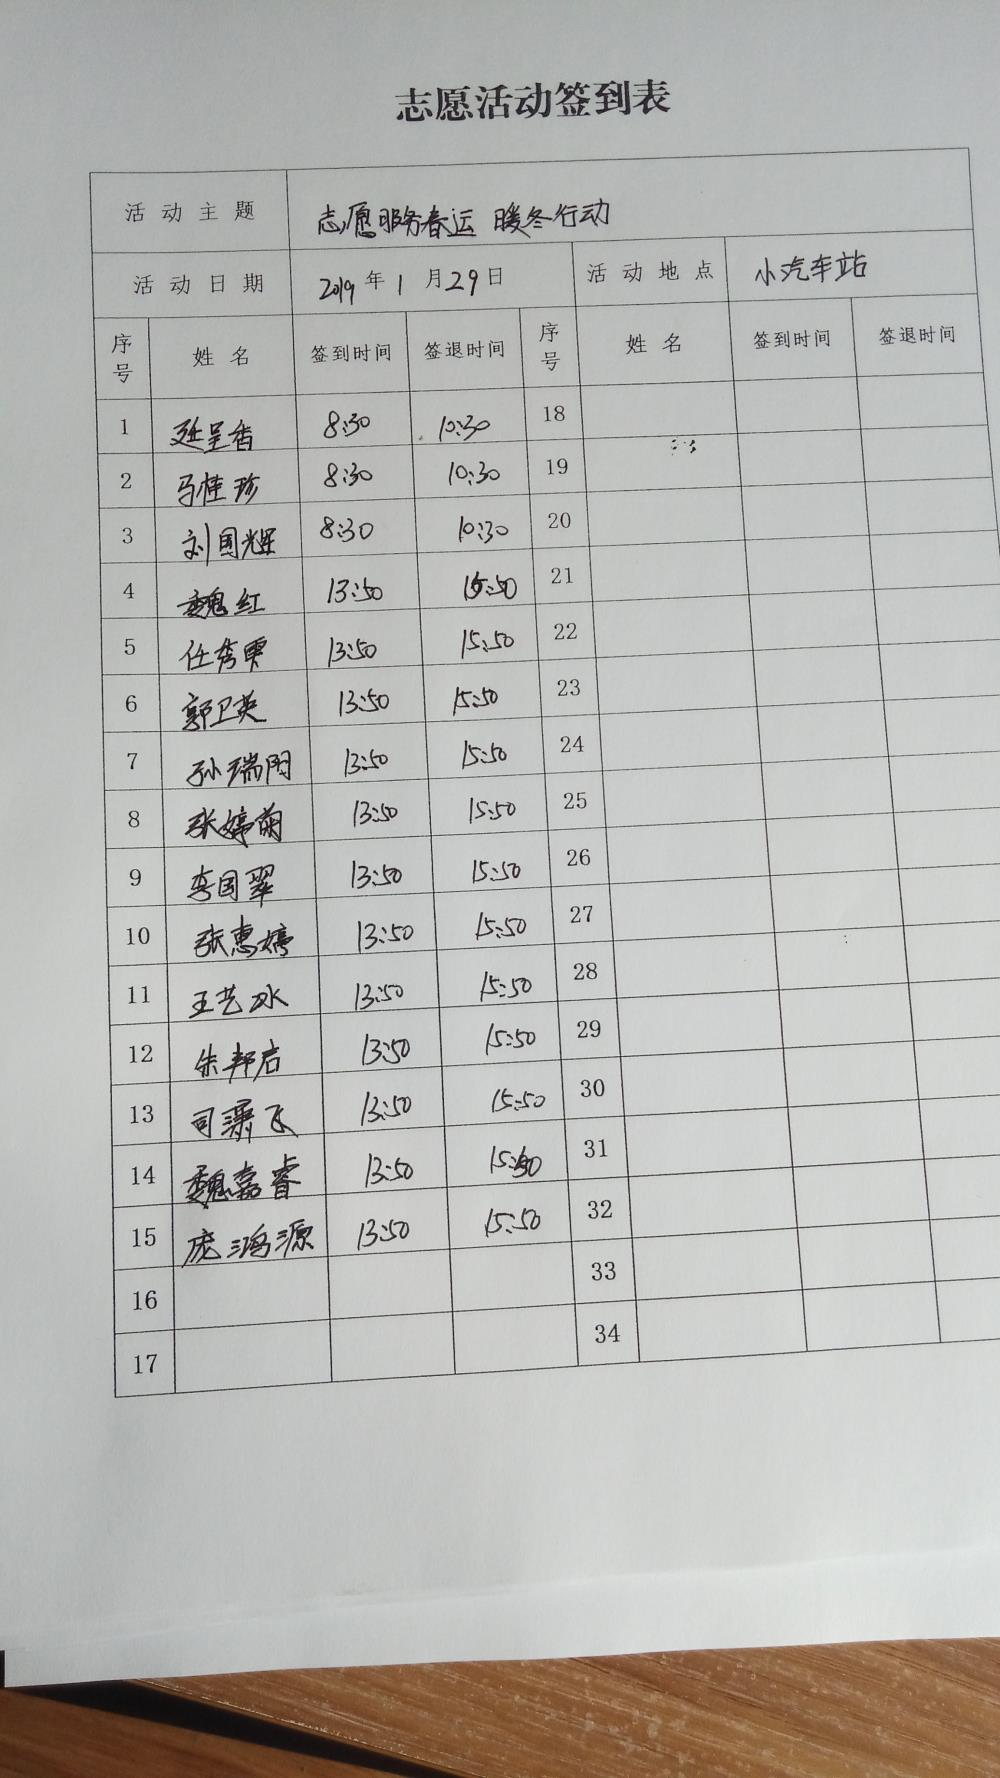 志愿活动签到表
活动主题 志愿服务春运 暖冬行动
活动日期 2019年1月29日 活动地点 小汽车站
序号 姓名 签到时间 签退时间 序号 姓名 签到时间 签退时间
1 延呈香 8:30 10:30 18
2 马桂珍 8:30 10:30 19
3 刘国辉 8:30 10:30 20
4 魏红 13:50 15:50 21
5 任秀 13:50 15:50 22
6 郭卫英 13:50 15:50 23
7 孙瑞阳 13:50 15:50 24
8 张婷菊 13:50 15:50 25
9 李国翠 13:50 15:50 26
10 张惠婷 13:50 15:50 27
11 王艺冰 13:50 15:50 28
12 朱邦启 13:50 15:50 29
13 司潇飞 13:50 15:50 30
14 魏嘉睿 13:50 15:50 31
15 庞鸿源 13:50 15:50 32
16 33
17 34